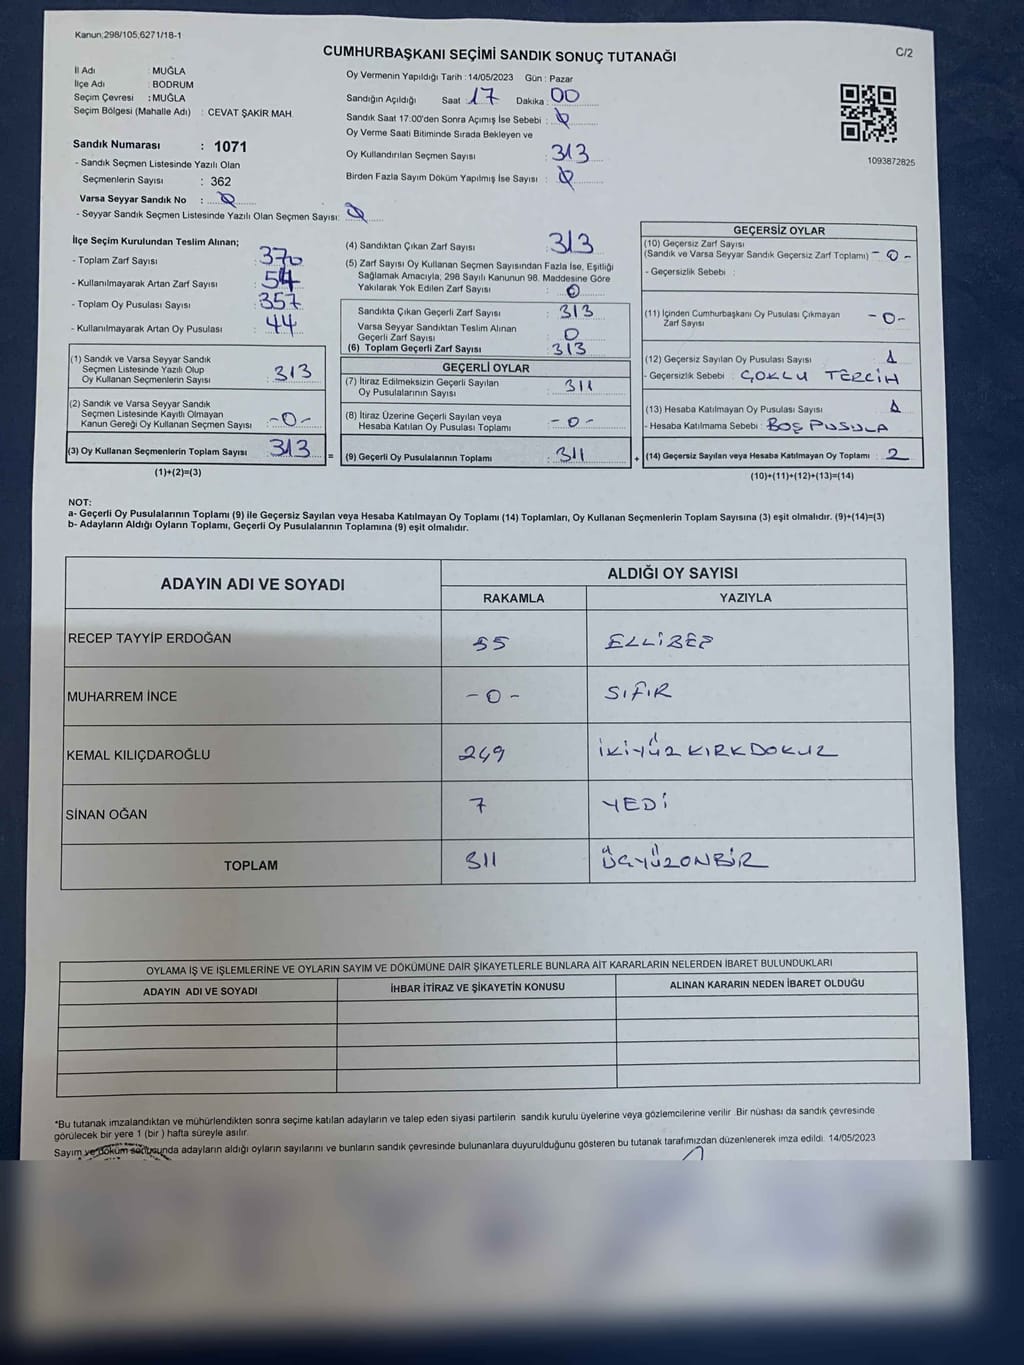 Kanun;298/105,6271/18-1
C/2
CUMHURBAŞKANI SEÇİMİ SANDIK SONUÇ TUTANAĞI
İl Adı : MUĞLA
İlçe Adı : BODRUM
Seçim Çevresi : MUĞLA
Seçim Bölgesi (Mahalle Adı) : CEVAT ŞAKİR MAH.
Sandık Numarası : 1071
- Sandık Seçmen Listesinde Yazılı Olan
Seçmenlerin Sayısı : 362
Varsa Seyyar Sandık No : 0
- Seyyar Sandık Seçmen Listesinde Yazılı Olan Seçmen Sayısı: 0
Oy Vermenin Yapıldığı Tarih : 14/05/2023 Gün : Pazar
Sandığın Açıldığı Saat : 17 Dakika : 00
Sandık Saat 17:00'den Sonra Açımış İse Sebebi : 0
Oy Verme Saati Bitiminde Sırada Bekleyen ve
Oy Kullandırılan Seçmen Sayısı : 313
Birden Fazla Sayım Döküm Yapılmış İse Sayısı : 0
1093872825
İlçe Seçim Kurulundan Teslim Alınan;
- Toplam Zarf Sayısı : 370
- Kullanılmayarak Artan Zarf Sayısı : 54
- Toplam Oy Pusulası Sayısı : 357
- Kullanılmayarak Artan Oy Pusulası : 44
(1) Sandık ve Varsa Seyyar Sandık
Seçmen Listesinde Yazılı Olup
Oy Kullanan Seçmenlerin Sayısı : 313
(2) Sandık ve Varsa Seyyar Sandık
Seçmen Listesinde Kayıtlı Olmayan
Kanun Gereği Oy Kullanan Seçmen Sayısı : -0-
(3) Oy Kullanan Seçmenlerin Toplam Sayısı : 313
(1)+(2)=(3)
=
(4) Sandıktan Çıkan Zarf Sayısı : 313
(5) Zarf Sayısı Oy Kullanan Seçmen Sayısından Fazla İse, Eşitliği
Sağlamak Amacıyla, 298 Sayılı Kanunun 98. Maddesine Göre
Yakılarak Yok Edilen Zarf Sayısı : 0
Sandıkta Çıkan Geçerli Zarf Sayısı : 313
Varsa Seyyar Sandıktan Teslim Alınan
Geçerli Zarf Sayısı : 0
(6) Toplam Geçerli Zarf Sayısı : 313
GEÇERLİ OYLAR
(7) İtiraz Edilmeksizin Geçerli Sayılan
Oy Pusulalarının Sayısı : 311
(8) İtiraz Üzerine Geçerli Sayılan veya
Hesaba Katılan Oy Pusulaları Toplamı : -0-
(9) Geçerli Oy Pusulalarının Toplamı : 311
+
GEÇERSİZ OYLAR
(10) Geçersiz Zarf Sayısı
(Sandık ve Varsa Seyyar Sandık Geçersiz Zarf Toplamı) -0-
- Geçersizlik Sebebi :
(11) İçinden Cumhurbaşkanı Oy Pusulası Çıkmayan
Zarf Sayısı -0-
(12) Geçersiz Sayılan Oy Pusulası Sayısı : 1
- Geçersizlik Sebebi : ÇOKLU TERCİH
(13) Hesaba Katılmayan Oy Pusulası Sayısı : 1
- Hesaba Katılmama Sebebi : BOŞ PUSULA
(14) Geçersiz Sayılan veya Hesaba Katılmayan Oy Toplamı : 2
(10)+(11)+(12)+(13)=(14)
NOT:
a- Geçerli Oy Pusulalarının Toplamı (9) ile Geçersiz Sayılan veya Hesaba Katılmayan Oy Toplamı (14) Toplamları, Oy Kullanan Seçmenlerin Toplam Sayısına (3) eşit olmalıdır. (9)+(14)=(3)
b- Adayların Aldığı Oyların Toplamı, Geçerli Oy Pusulalarının Toplamına (9) eşit olmalıdır.
ADAYIN ADI VE SOYADI
ALDIĞI OY SAYISI
RAKAMLA YAZIYLA
RECEP TAYYİP ERDOĞAN 55 ELLİBEŞ
MUHARREM İNCE -0- SIFIR
KEMAL KILIÇDAROĞLU 249 İKİYÜZKIRKDOKUZ
SİNAN OĞAN 7 YEDİ
TOPLAM 311 ÜÇYÜZONBİR
OYLAMA İŞ VE İŞLEMLERİNE VE OYLARIN SAYIM VE DÖKÜMÜNE DAİR ŞİKAYETLERLE BUNLARA AİT KARARLARIN NELERDEN İBARET BULUNDUKLARI
ADAYIN ADI VE SOYADI İHBAR İTİRAZ VE ŞİKAYETİN KONUSU ALINAN KARARIN NEDEN İBARET OLDUĞU
*Bu tutanak imzalandıktan ve mühürlendikten sonra seçime katılan adayların ve talep eden siyasi partilerin sandık kurulu üyelerine veya gözlemcilerine verilir Bir nüshası da sandık çevresinde
görülecek bir yere 1 (bir ) hafta süreyle asılır.
Sayım ve döküm sonucunda adayların aldığı oyların sayılarını ve bunların sandık çevresinde bulunanlara duyurulduğunu gösteren bu tutanak tarafımızdan düzenlenerek imza edildi. 14/05/2023